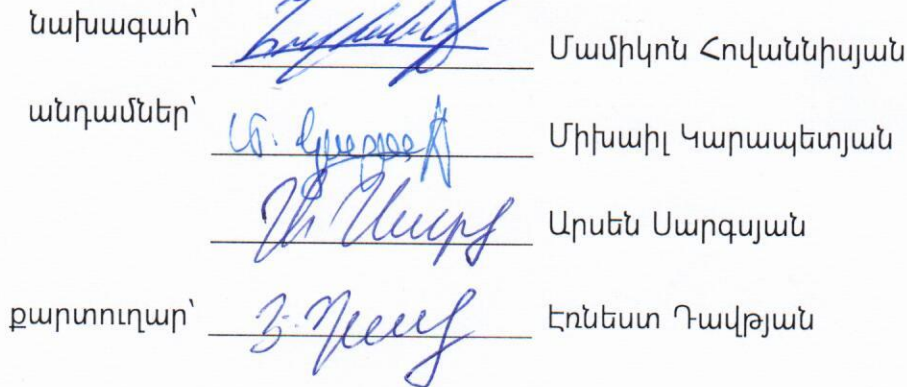 նախագահ՝ Մամիկոն Հովաննիսյան
անդամներ՝ Միխաիլ Կարապետյան
Արսեն Սարգսյան
քարտուղար՝ Էռնեստ Դավթյան